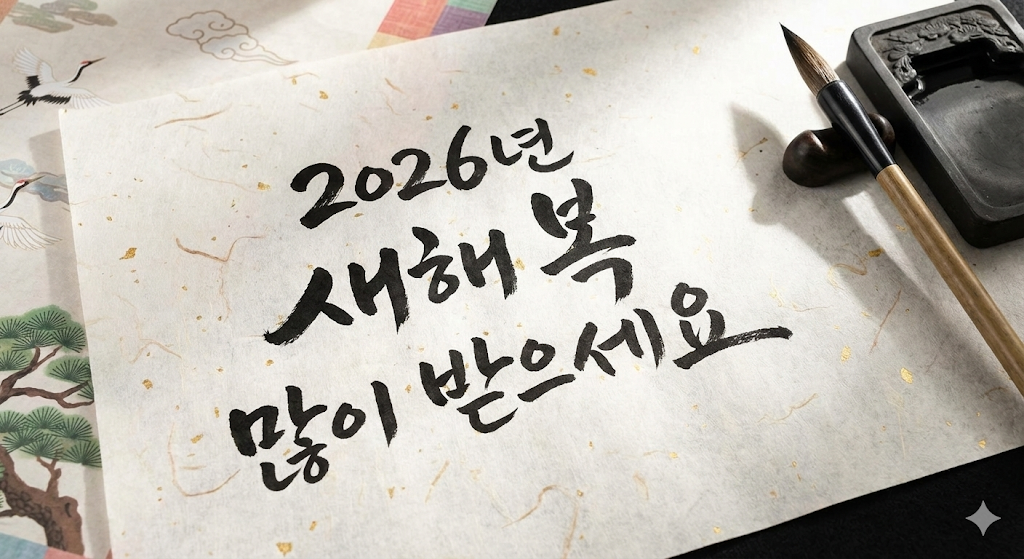 2026년
새해 복
많이 받으세요